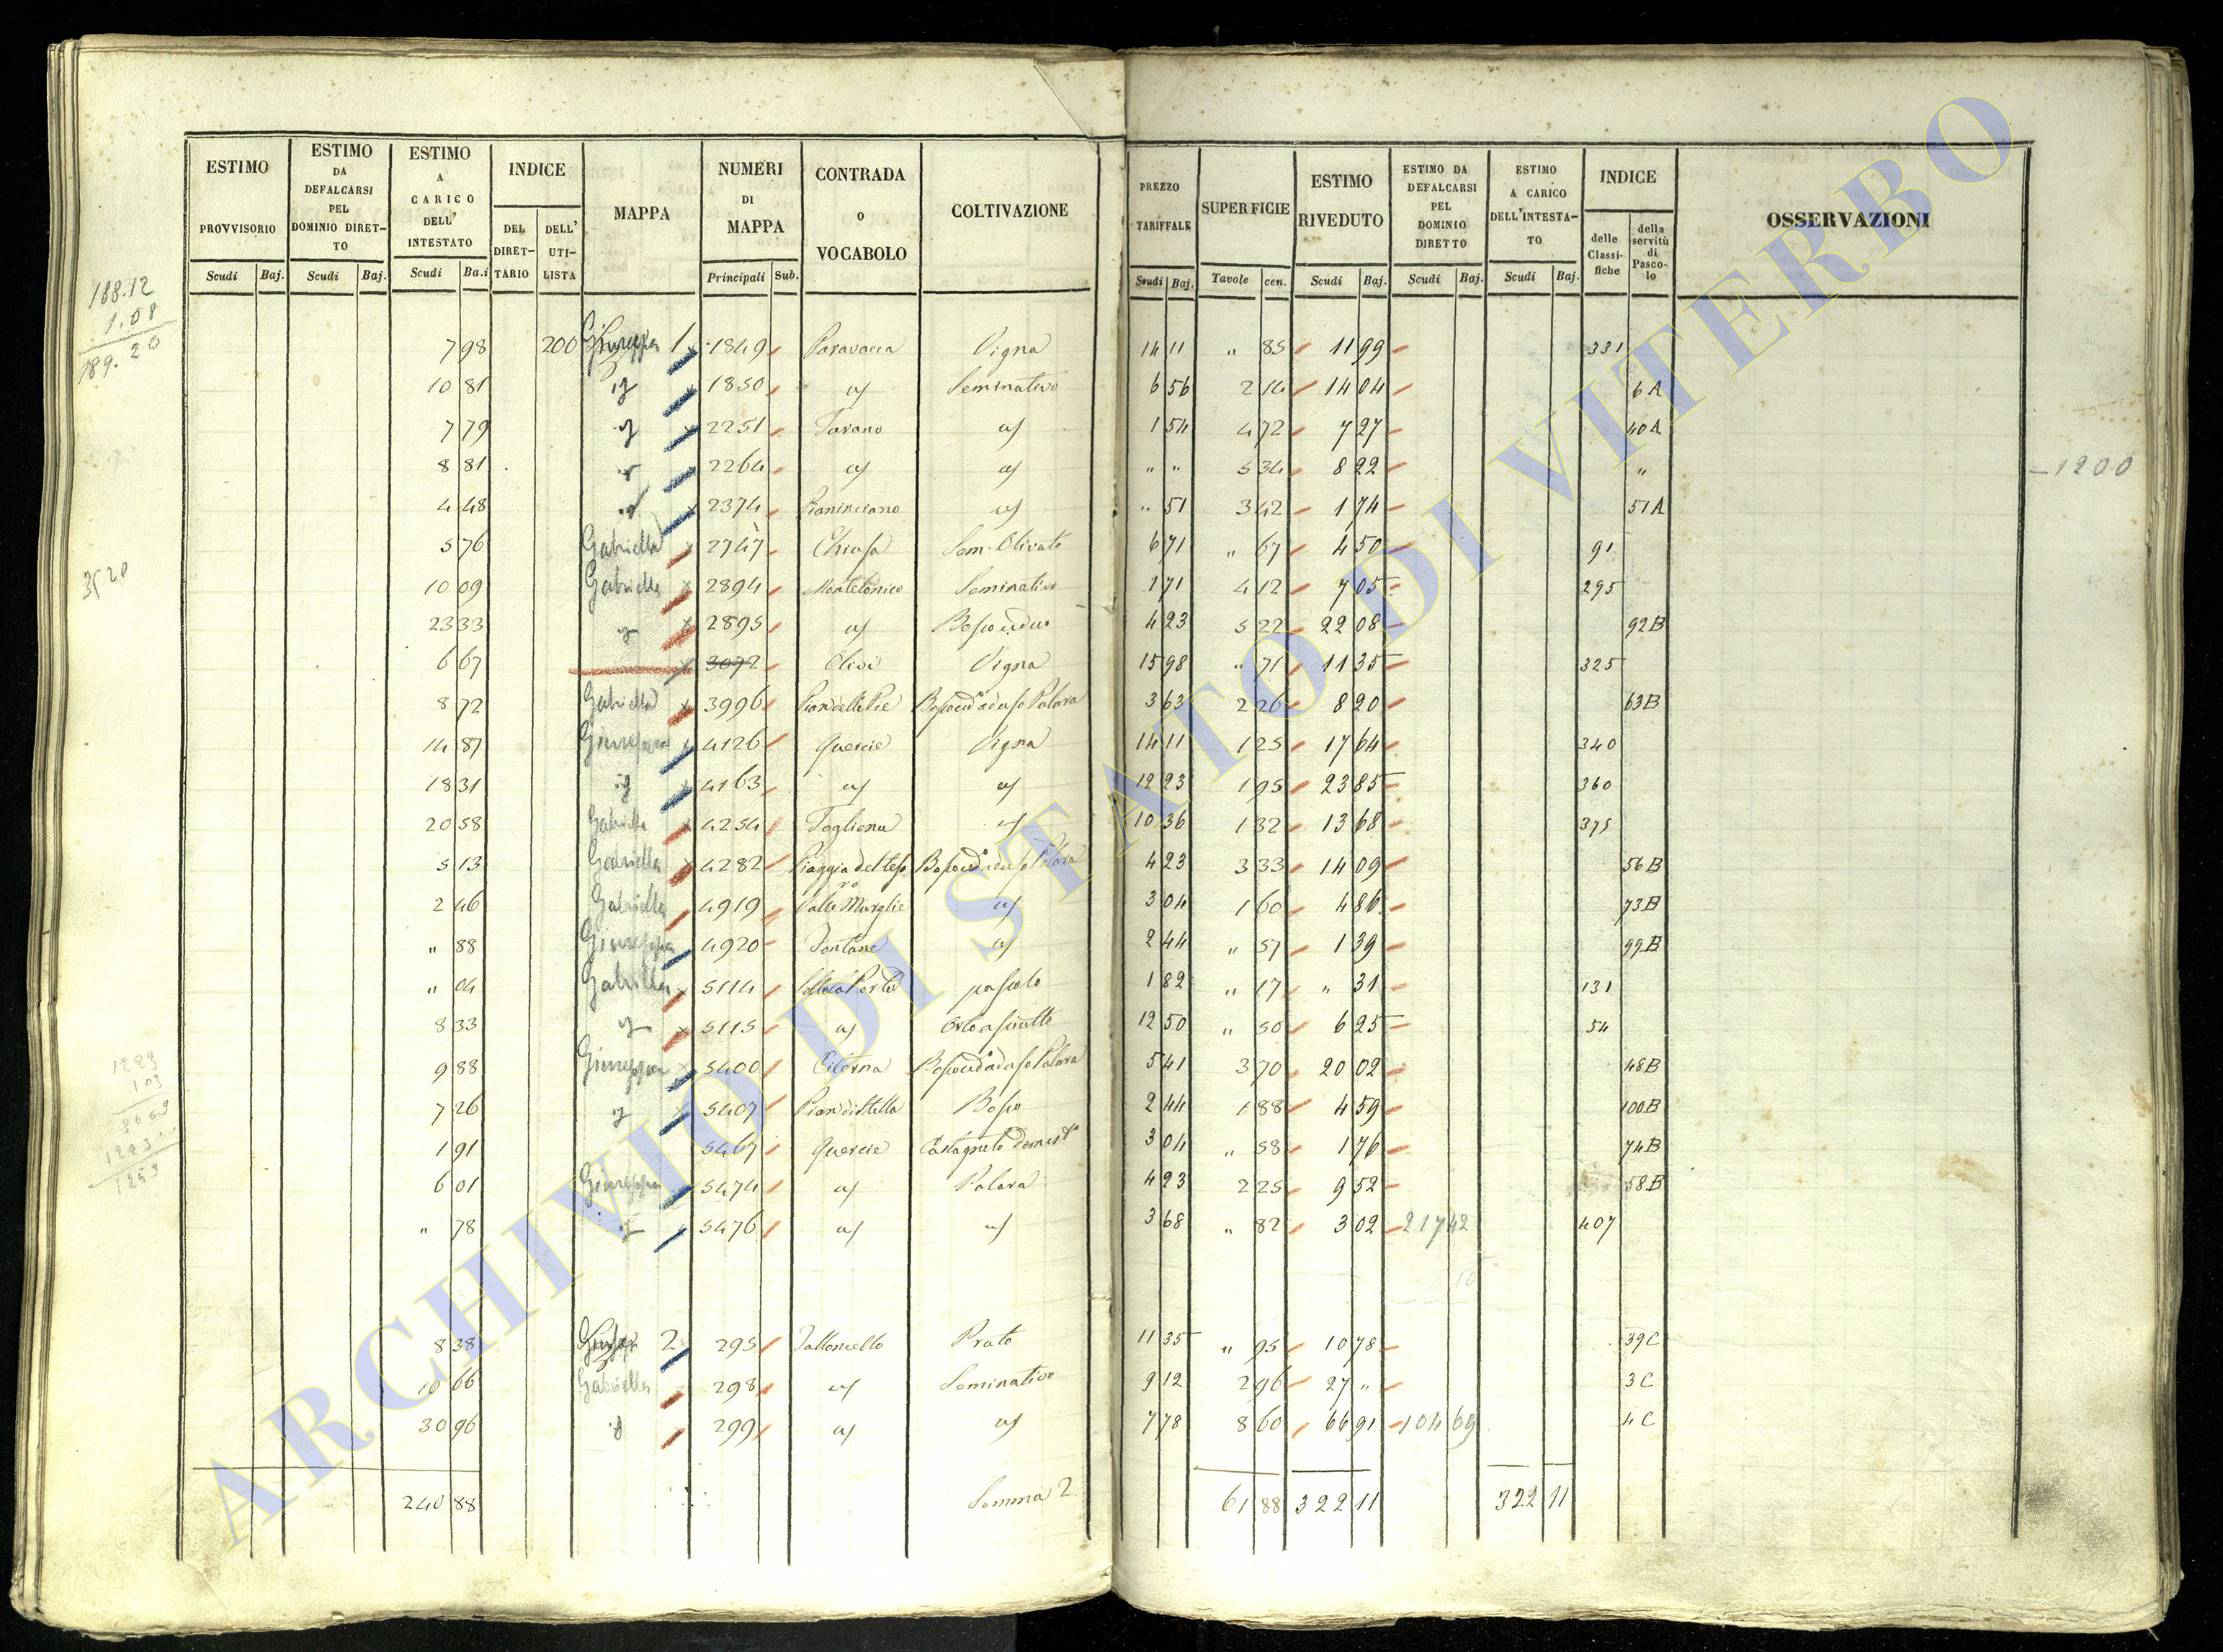 ESTIMO PROVVISORIO Scudi Baj.
ESTIMO DA DEFALCARSI PEL DOMINIO DIRET-TO Scudi Baj.
ESTIMO A CARICO DELL' INTESTATO Scudi Ba.i
INDICE DEL DIRET-TARIO DELL' UTI-LISTA
MAPPA
NUMERI DI MAPPA Principali Sub.
CONTRADA O VOCABOLO
COLTIVAZIONE
PREZZO TARIFFALE Scudi Baj.
SUPERFICIE Tavole cen.
ESTIMO RIVEDUTO Scudi Baj.
ESTIMO DA DEFALCARSI PEL DOMINIO DIRETTO Scudi Baj.
ESTIMO A CARICO DELL'INTESTA-TO Scudi Baj.
INDICE delle Classi-fiche della servitù di Pasco-lo
OSSERVAZIONI
188.12
1.08
189.20
7 98 200 Giuseppa 1 1849 Paravacca Vigna 14 11 " 85 11 99 331
10 81 1850 Seminativo 6 56 2 14 14 04 6A
7 79 2251 Tarano 1 54 4 72 7 27 40A
8 81 2264 " " 5 34 8 22 " - 1200
4 48 2374 " 51 3 42 1 74 51A
5 76 Gabriella 2747 Chiusa Sem. Olivato 6 71 " 67 4 50 91
3520
10 09 Gabriella 2894 Montetonico Seminativo 1 71 4 12 7 05 295
23 33 2895 4 23 5 22 22 08 92B
6 67 3072 Olivi Vigna 15 98 " 71 11 35 325
8 72 Gabriella 3996 3 63 2 26 8 20 63B
14 87 Giuseppa 4126 Quercie Vigna 14 11 1 25 17 64 340
18 31 4163 12 23 1 95 23 85 360
20 58 Gabriella 4254 Togliena 10 36 1 32 13 68 375
5 13 Gabriella 4282 4 23 3 33 14 09 56B
2 46 Gabriella 4919 Valle 3 04 1 60 4 86 73B
" 88 Giuseppa 4920 Fontane 2 44 " 57 1 39 99B
" 04 Gabriella 5114 pascolo 1 82 " 17 " 31 131
8 33 5115 Orto asciutto 12 50 " 50 6 25 54
9 88 Giuseppa 5400 Citerna 5 41 3 70 20 02 48B
7 26 5407 Bosco 2 44 1 88 4 59 100B
1 91 5467 Quercie Castagneto 3 04 " 58 1 76 74B
6 01 Giuseppa 5474 Palara 4 23 2 25 9 52 58B
" 78 5476 3 68 " 82 3 02 217 42 407
8 38 2 295 Valloncello Prato 11 35 " 95 10 78 39C
10 66 Gabriella 298 Seminativo 9 12 2 96 27 " 3C
30 96 299 7 78 8 60 66 91 104 69 4C
240 88 Somma 2 61 88 322 11 322 11
ARCHIVIO DI STATO DI VITERBO